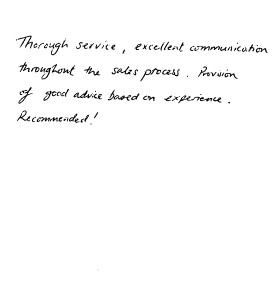 Thorough service, excellent communication
throughout the sales process. Provision
of good advice based on experience.
Recommended!